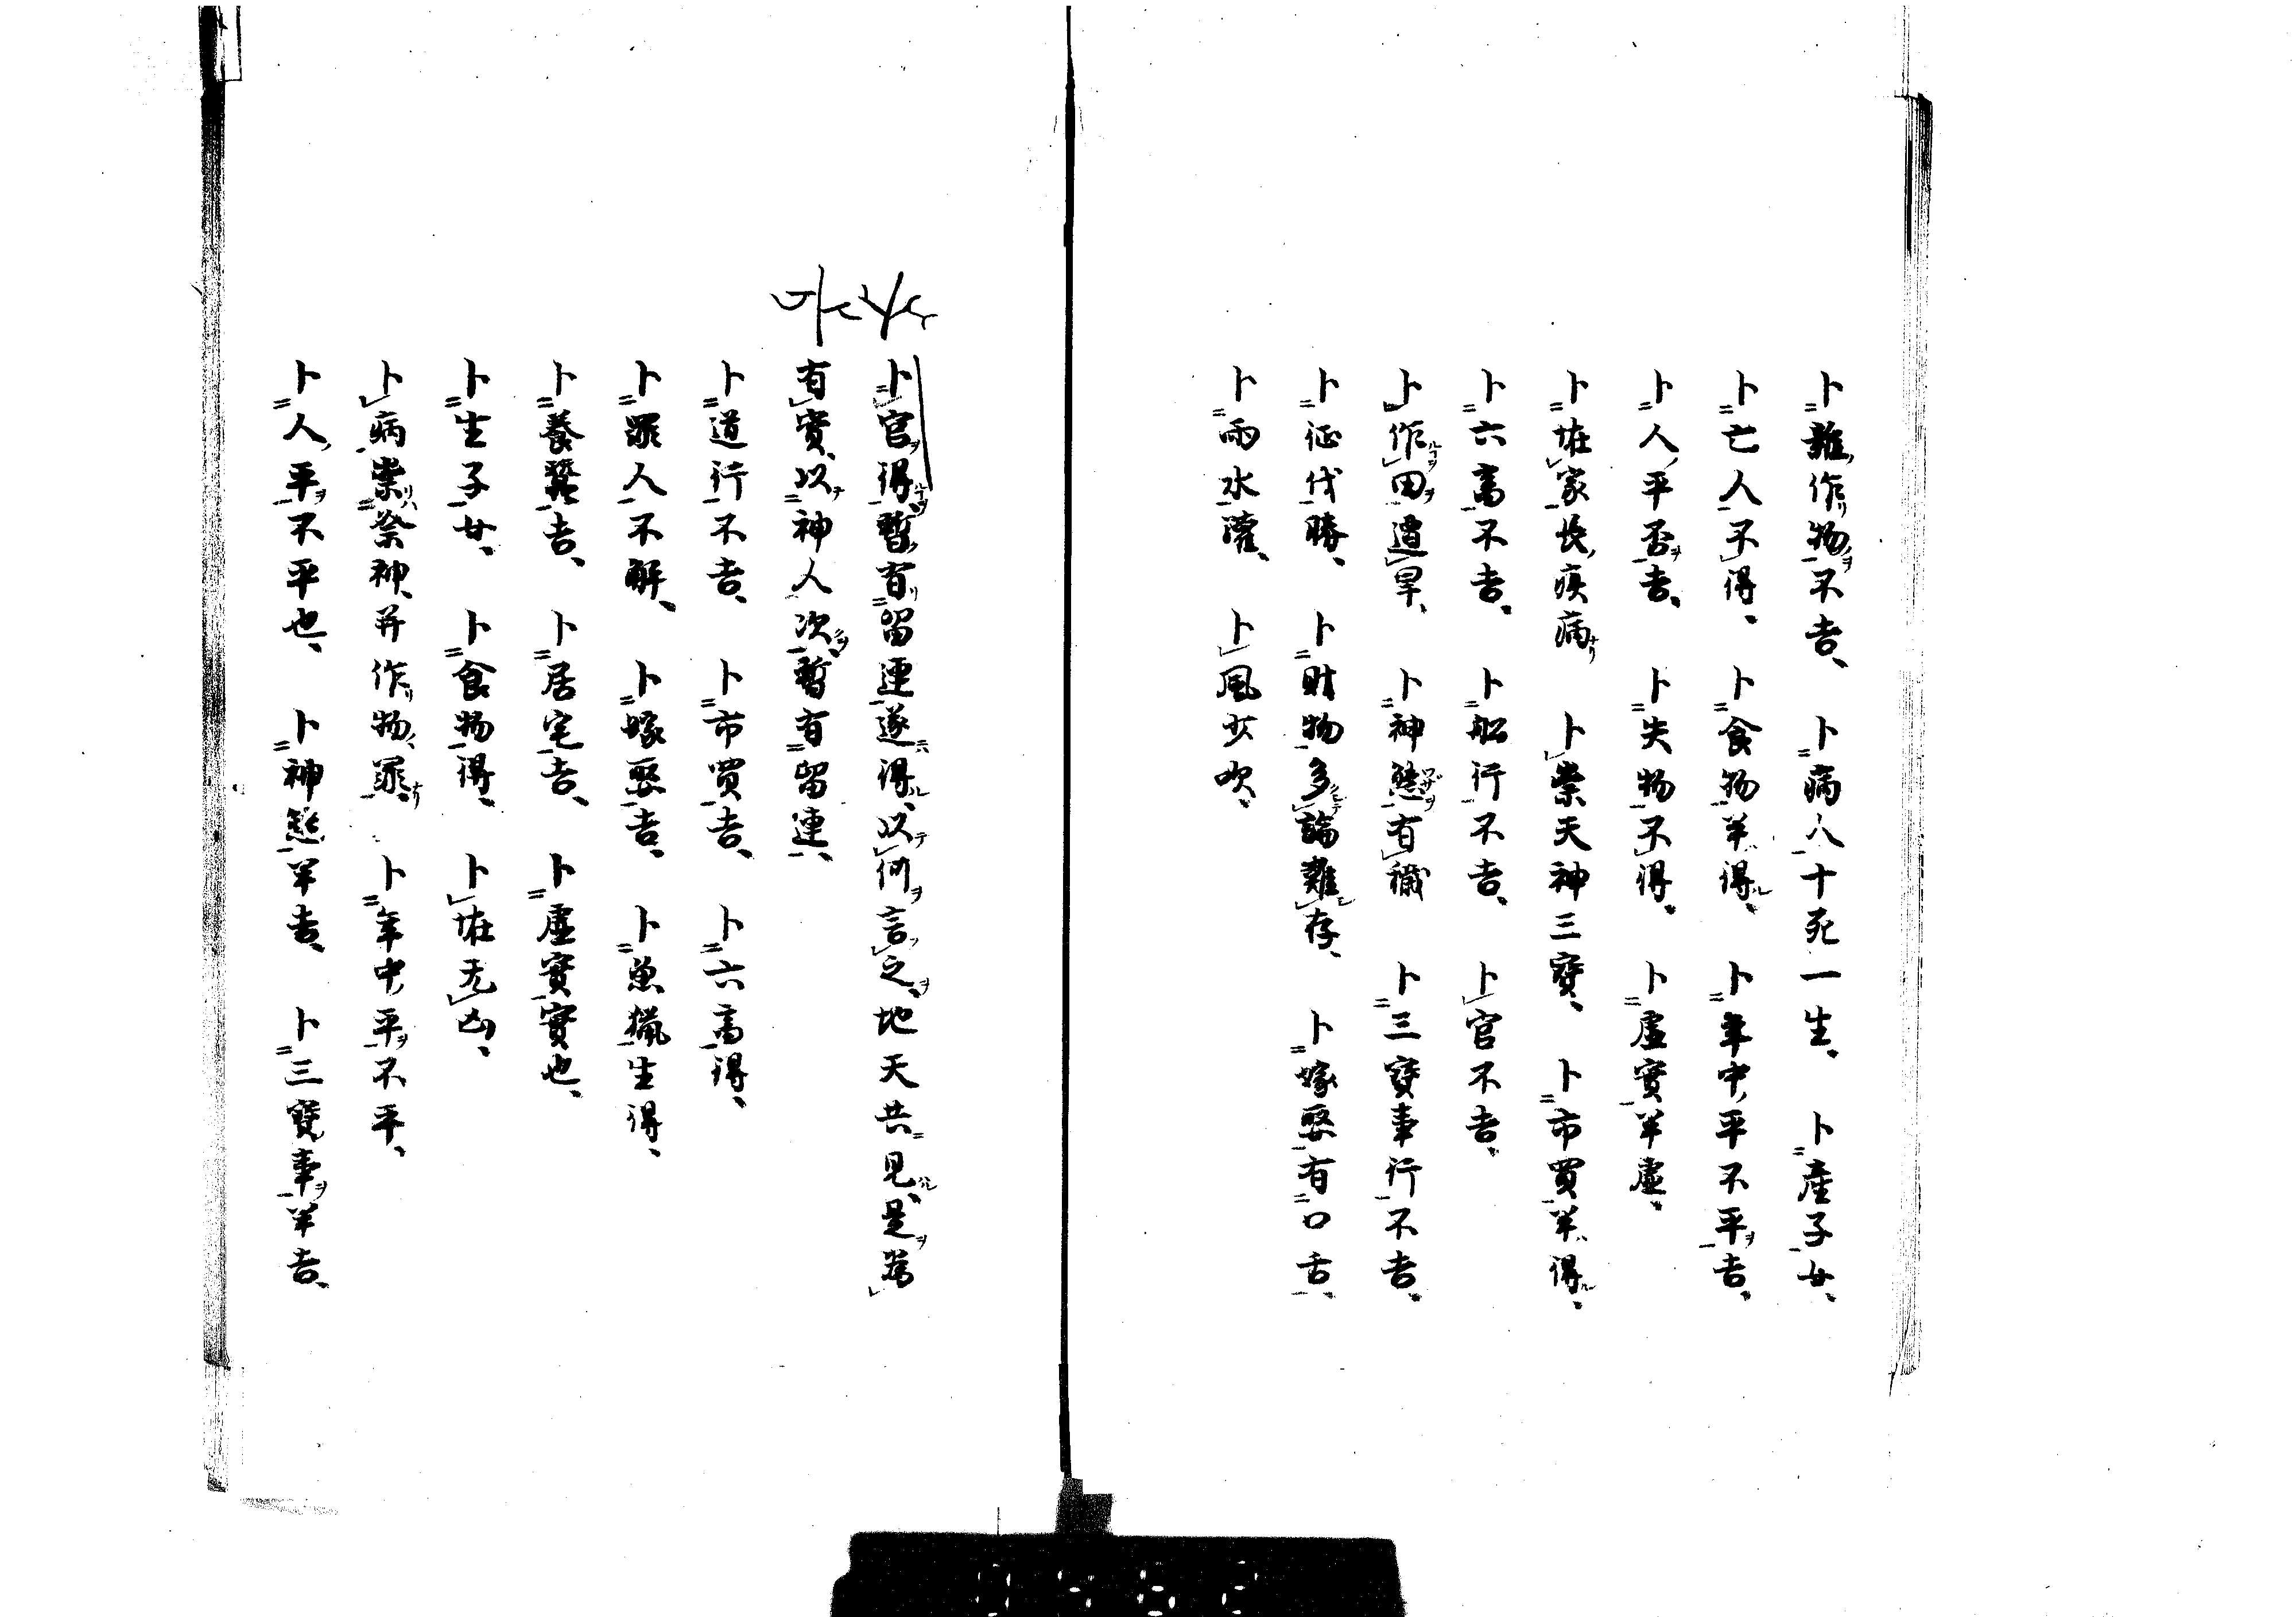 卜難作物不吉、 卜病人十死一生、 卜産子女、
卜亡人不得、 卜食物半得、 卜年中平不平吉、
卜人平否吉、 卜失物不得、 卜虚實半虚、
卜在家長疾病 卜祟天神三寶、 卜市買半得、
卜六畜不吉、 卜船行不吉、 卜官不吉、
卜作田遭旱、 卜神態有穢 卜三寶事行不吉、
卜征伐勝、 卜財物多論難存、 卜嫁娶有口舌、
卜雨水灌、 卜風少吹、
卜官得暫有留連遂得、以何言之、地天共見、是為
有實、以神人次暫有留連、
卜道行不吉、 卜市買吉、 卜六畜得、
卜罪人不解、 卜嫁娶吉、 卜魚猟生得、
卜養蠶吉、 卜居宅吉、 卜虚實實也、
卜生子女、 卜食物得、 卜在无凶、
卜病祟祭神、并作物罪、 卜年中平不平、
卜人平不平也、 卜神態半吉、 卜三寶事半吉、